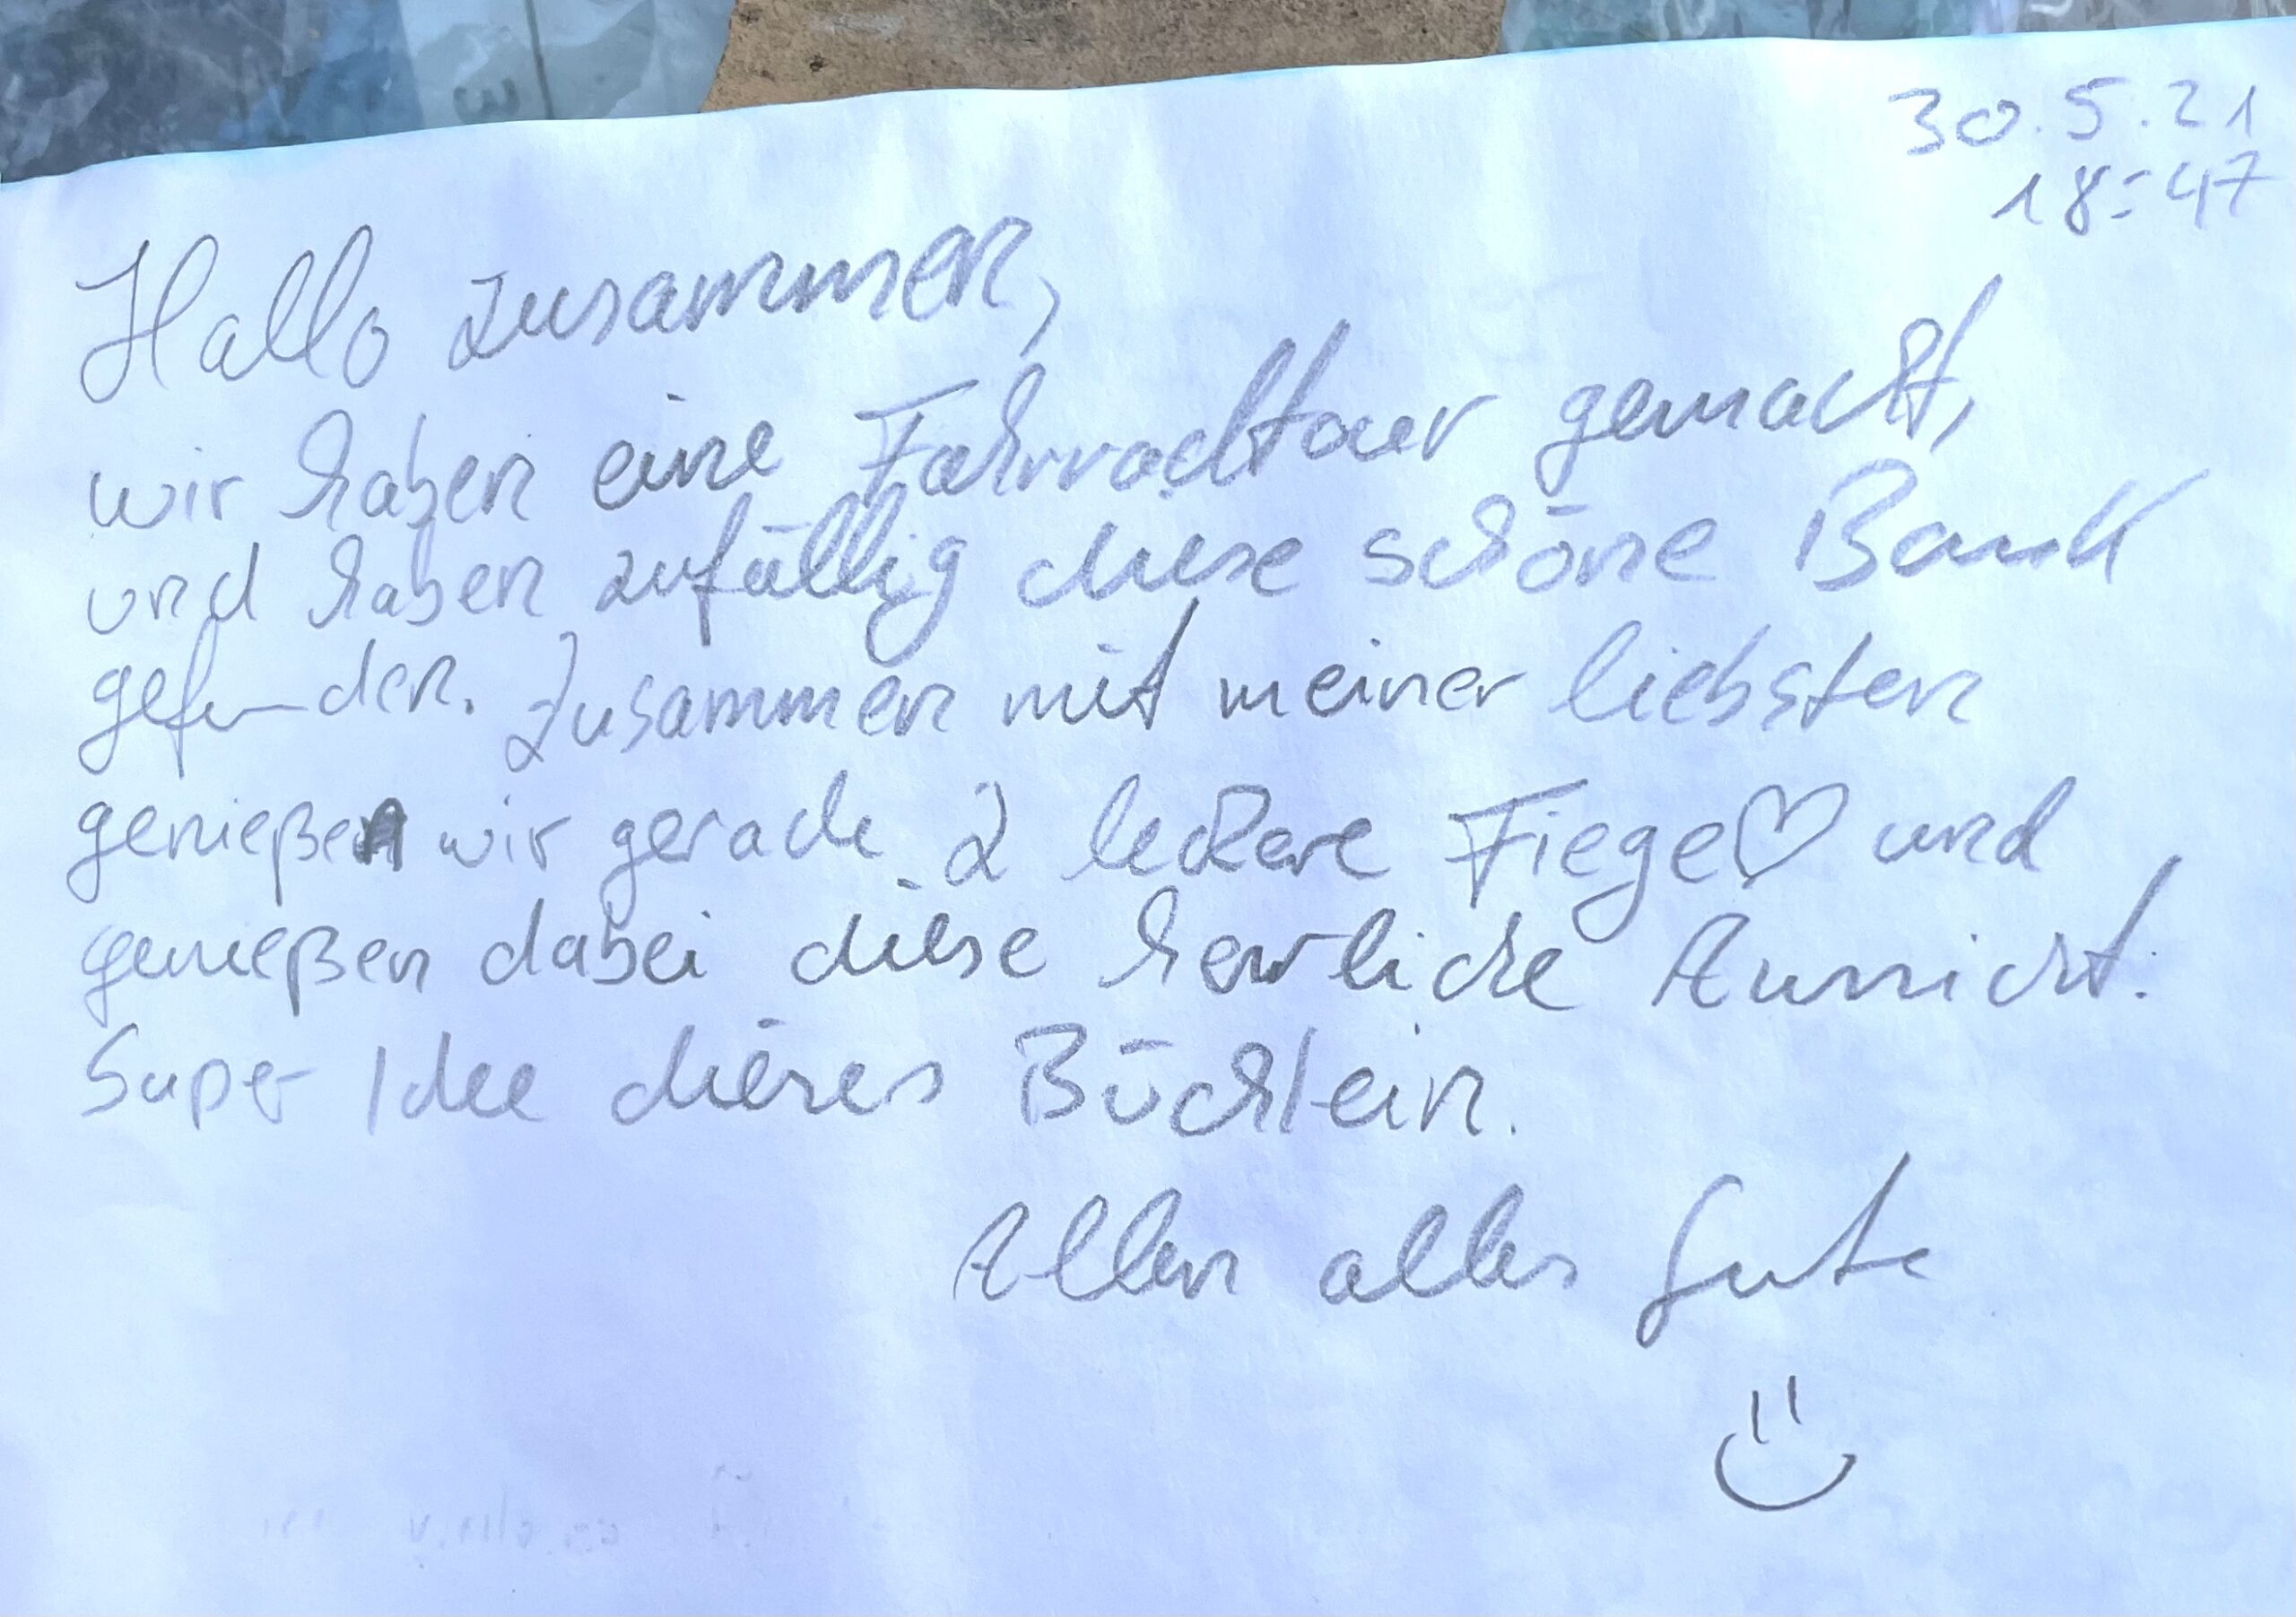 30.5.21
18:47
Hallo zusammen,
wir haben eine Fahrradtour gemacht,
und haben zufällig diese schöne Bank
gefunden. Zusammen mit meiner liebsten
genießen wir gerade 2 leckere Fiege♡ und
genießen dabei diese herrliche Aussicht.
Super Idee dieses Büchlein.
Allen alles Gute